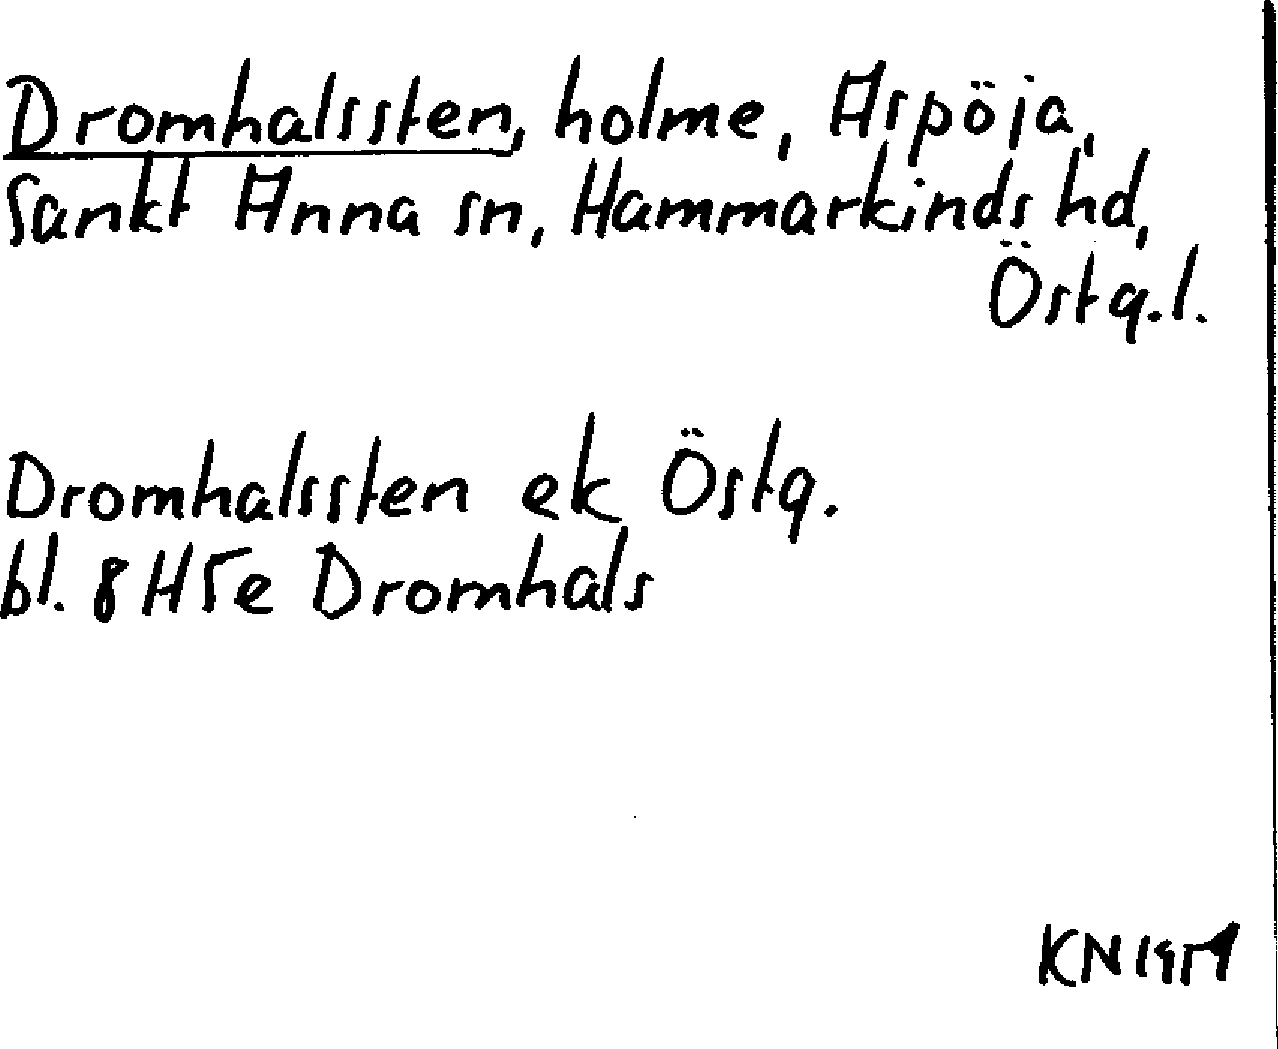 Dromhalssten, holme, Aspöja,
Sankt Anna sn, Hammarkinds hd,
Östg.l.
Dromhalssten ek Östg.
bl. 8H5e Dromhals
KN